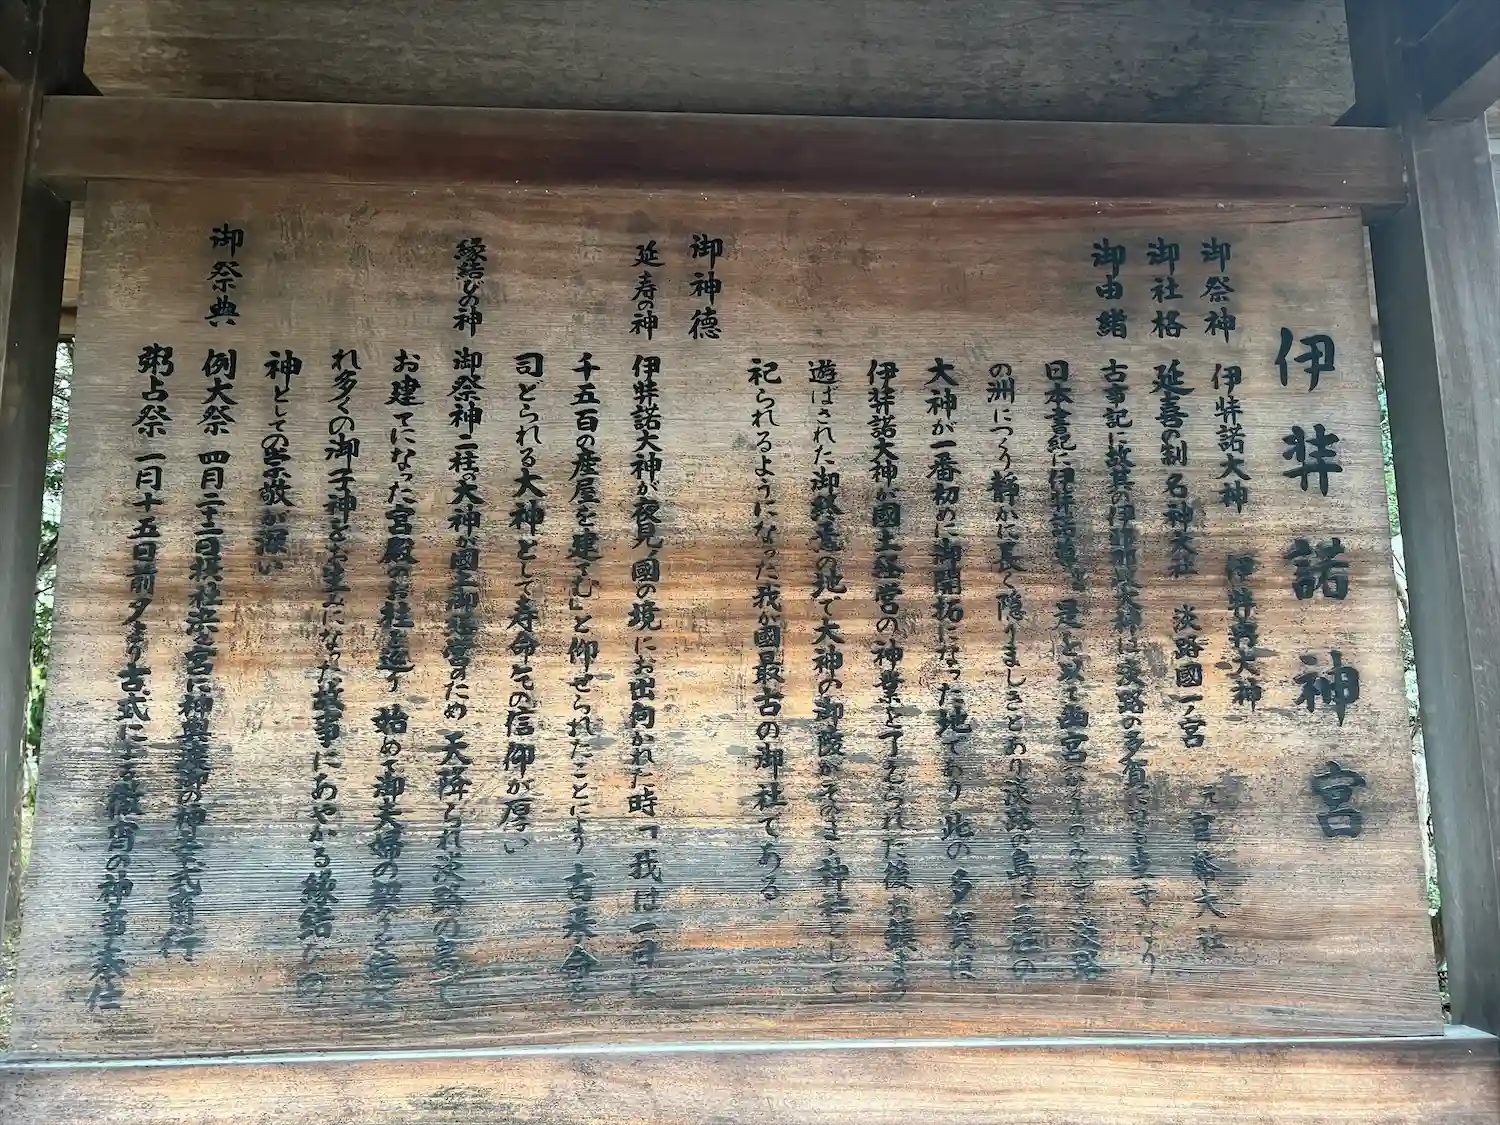 伊弉諾神宮
御祭神 伊弉諾大神 伊弉冉大神
御社格 延喜の制 名神大社 淡路國一ノ宮 元官幣大社
御由緒 古事記に故其の伊弉諾大神は淡路の多賀になも坐すなり
日本書紀に伊弉諾尊 是を以て幽宮(かくりのみや)を淡路
の洲につくり静かに長く隠りましきとあり淡路の島は
大神が一番初めに御開拓になった地であり此の多賀は
伊弉諾大神が國土経営の神業を了えられた後お鎮まり
遊ばされた御終焉の地で大神の御陵がそのまま神社として
祀られるようになった我が國最古の御社である
御神徳
延寿の神 伊弉諾大神が夜見ノ國の境にお出向かれた時「我は一日に
千五百の産屋を建てむ」と仰せられたことにより古来命を
司どられる大神として寿命乞の信仰が厚い
縁結びの神 御祭神二柱の大神が國土御経営のため天降られ淡路の島で
お建てになった宮殿の御柱を廻り始めて御夫婦の契りを
れ多くの御子神をお生みになりた故事にあやかる縁結びの
神としての崇敬が深い
御祭典 例大祭 四月二十二日模社浜之宮に神輿渡御の神幸式斎行
粥占祭 一月十五日前夕より古式による徹宵の神事奉仕